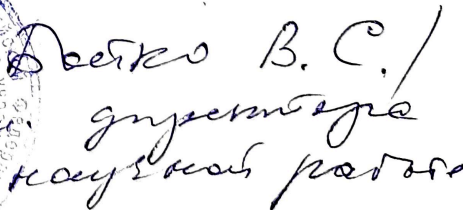 Бойко В. С./
директора
научной работе